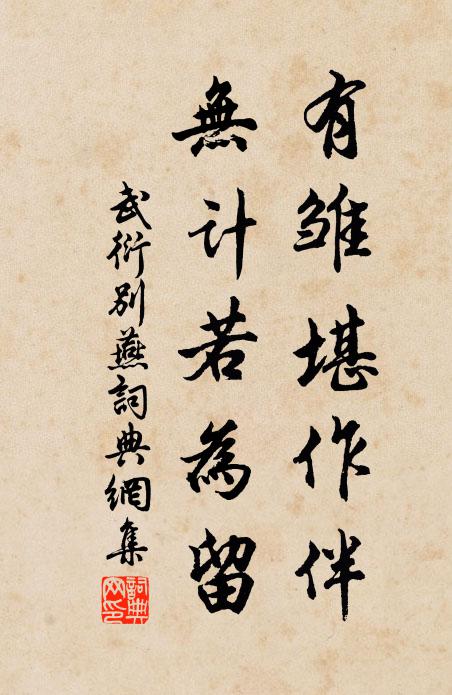 有雏堪作伴
無计若為留
武衍别燕詞典網集
詞典網印